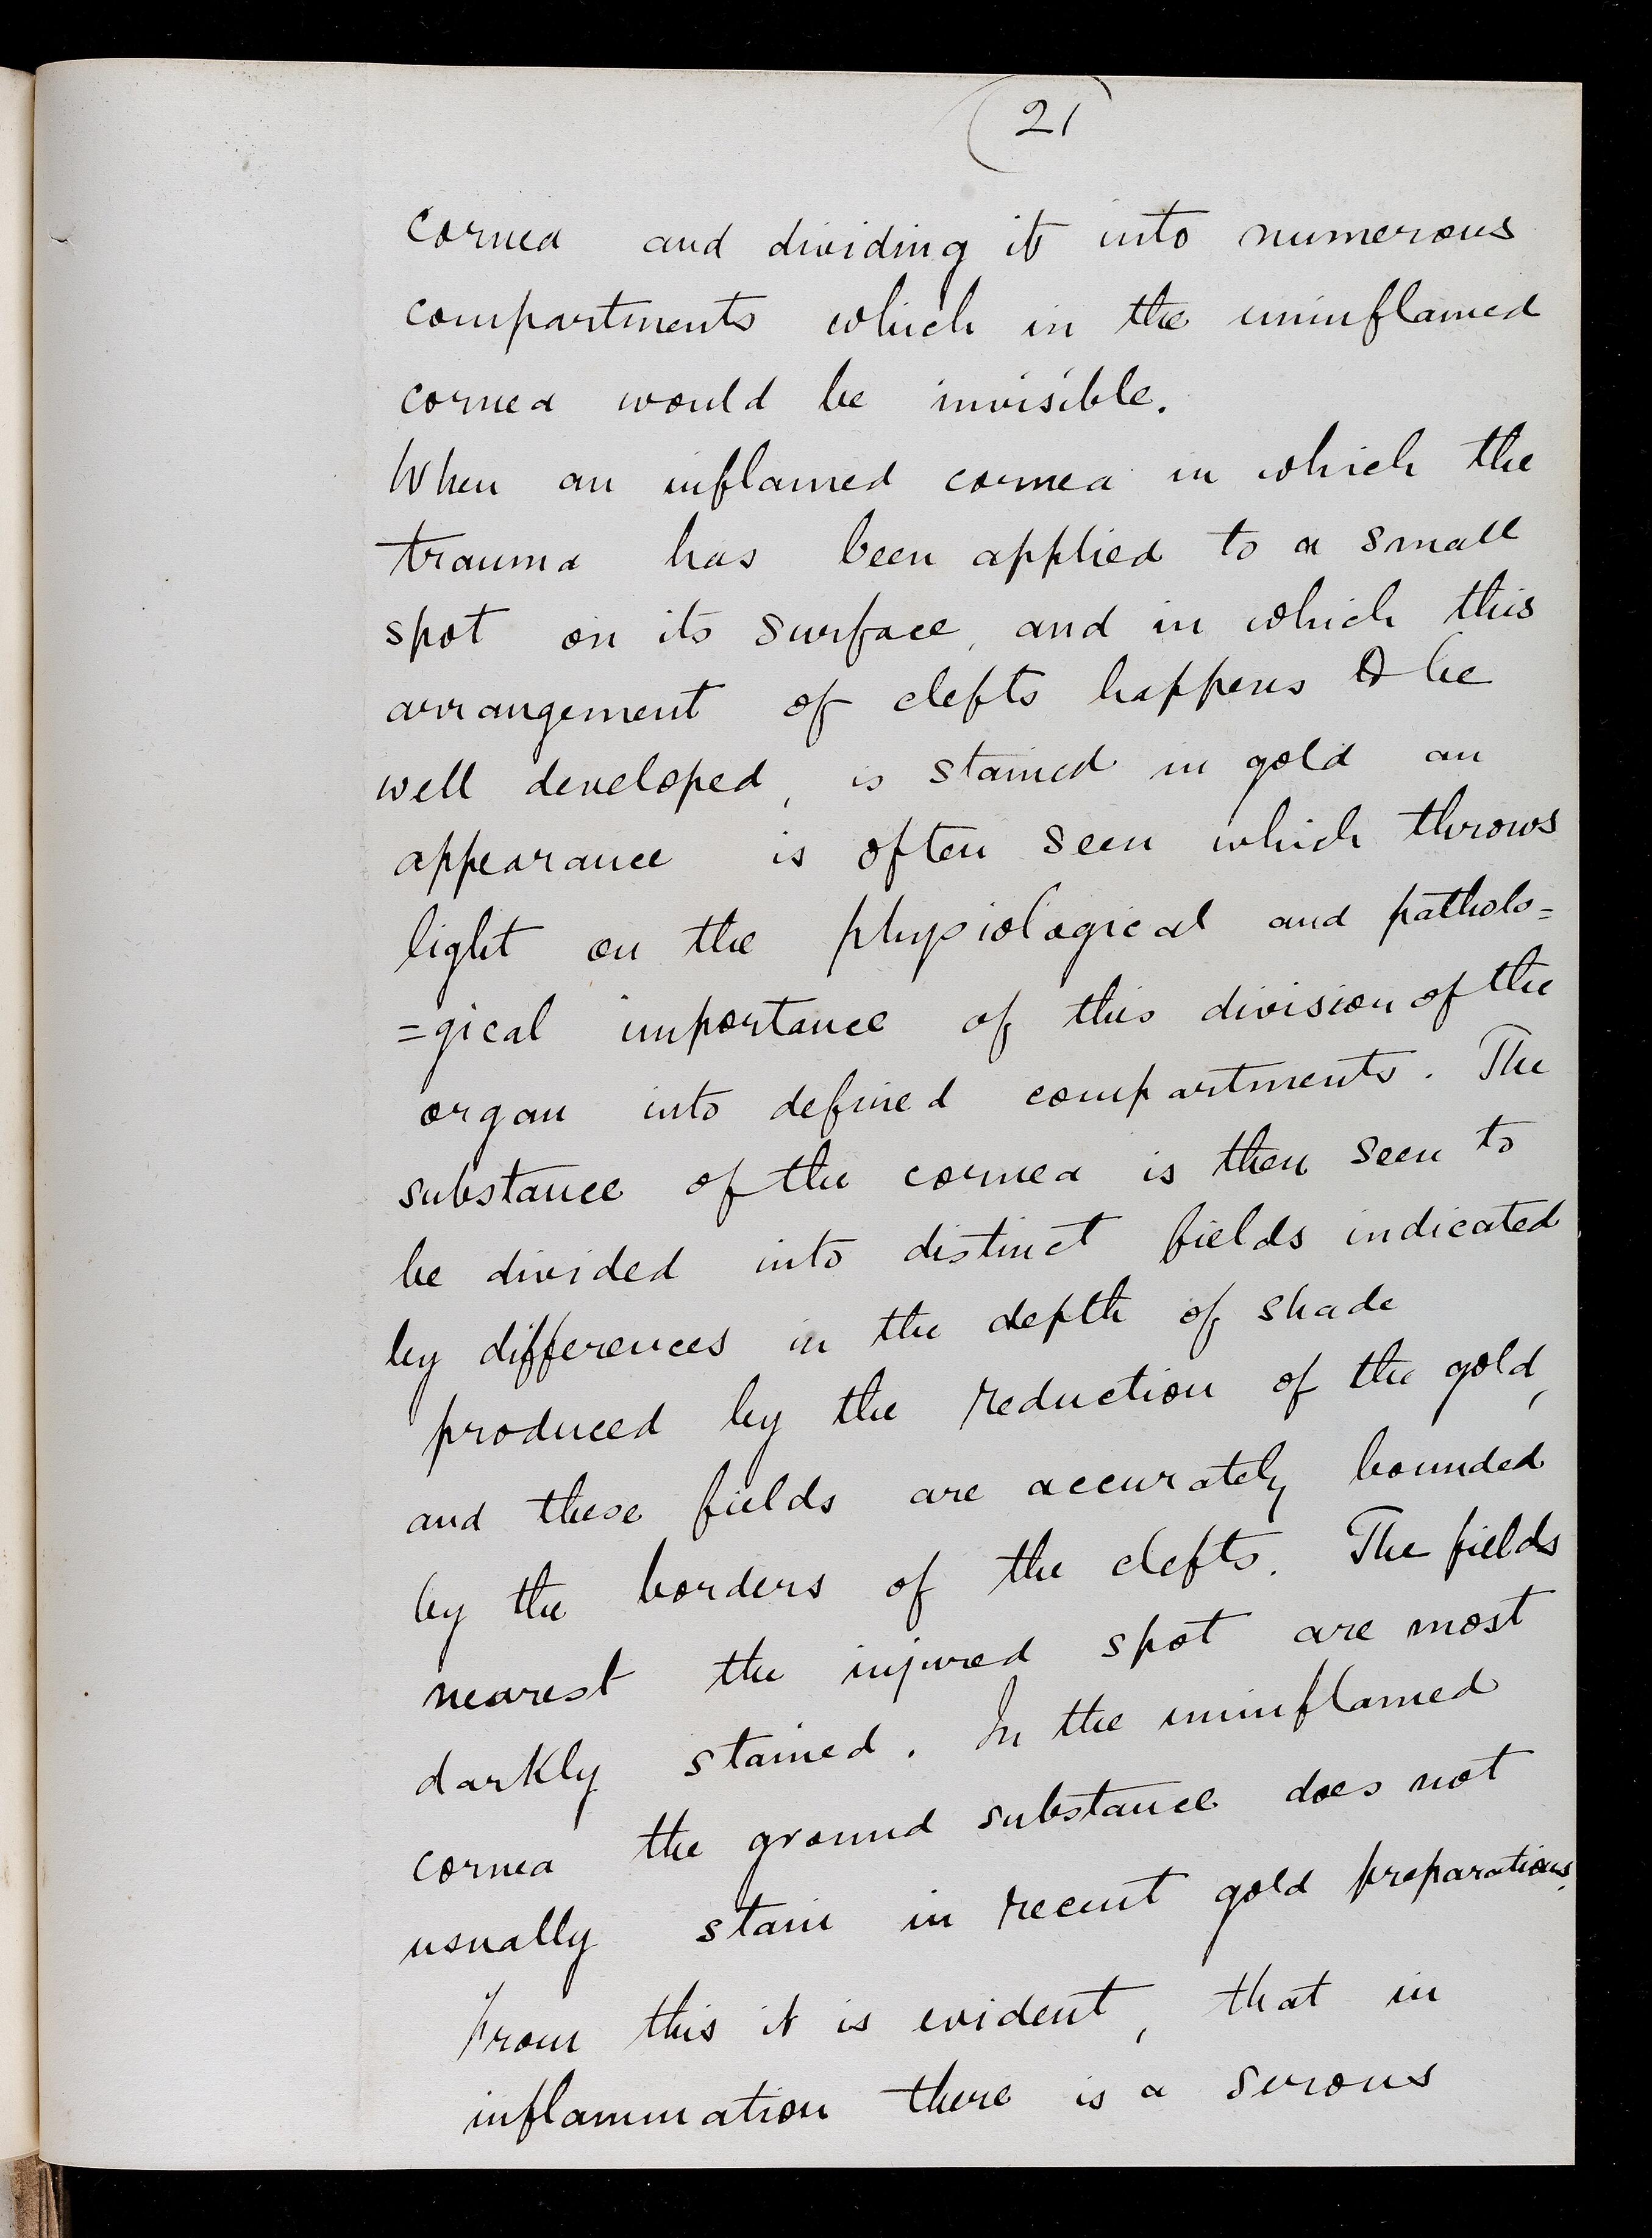 (21)
cornea and dividing it into numerous
compartments which in the uninflamed
cornea would be invisible.
When an inflamed cornea in which the
trauma has been applied to a small
spot on its surface, and in which this
arrangement of clefts happens to be
well developed, is stained in gold an
appearance is often seen which throws
light on the physiological and patholo=
=gical importance of this division of the
organ into defined compartments. The
substance of the cornea is then seen to
be divided into distinct fields indicated
by differences in the depth of shade
produced by the reduction of the gold,
and these fields are accurately bounded
by the borders of the clefts. The fields
nearest the injured spot are most
darkly stained. In the uninflamed
cornea the ground substance does not
usually stain in recent gold preparations.
From this it is evident, that in
inflammation there is a serous